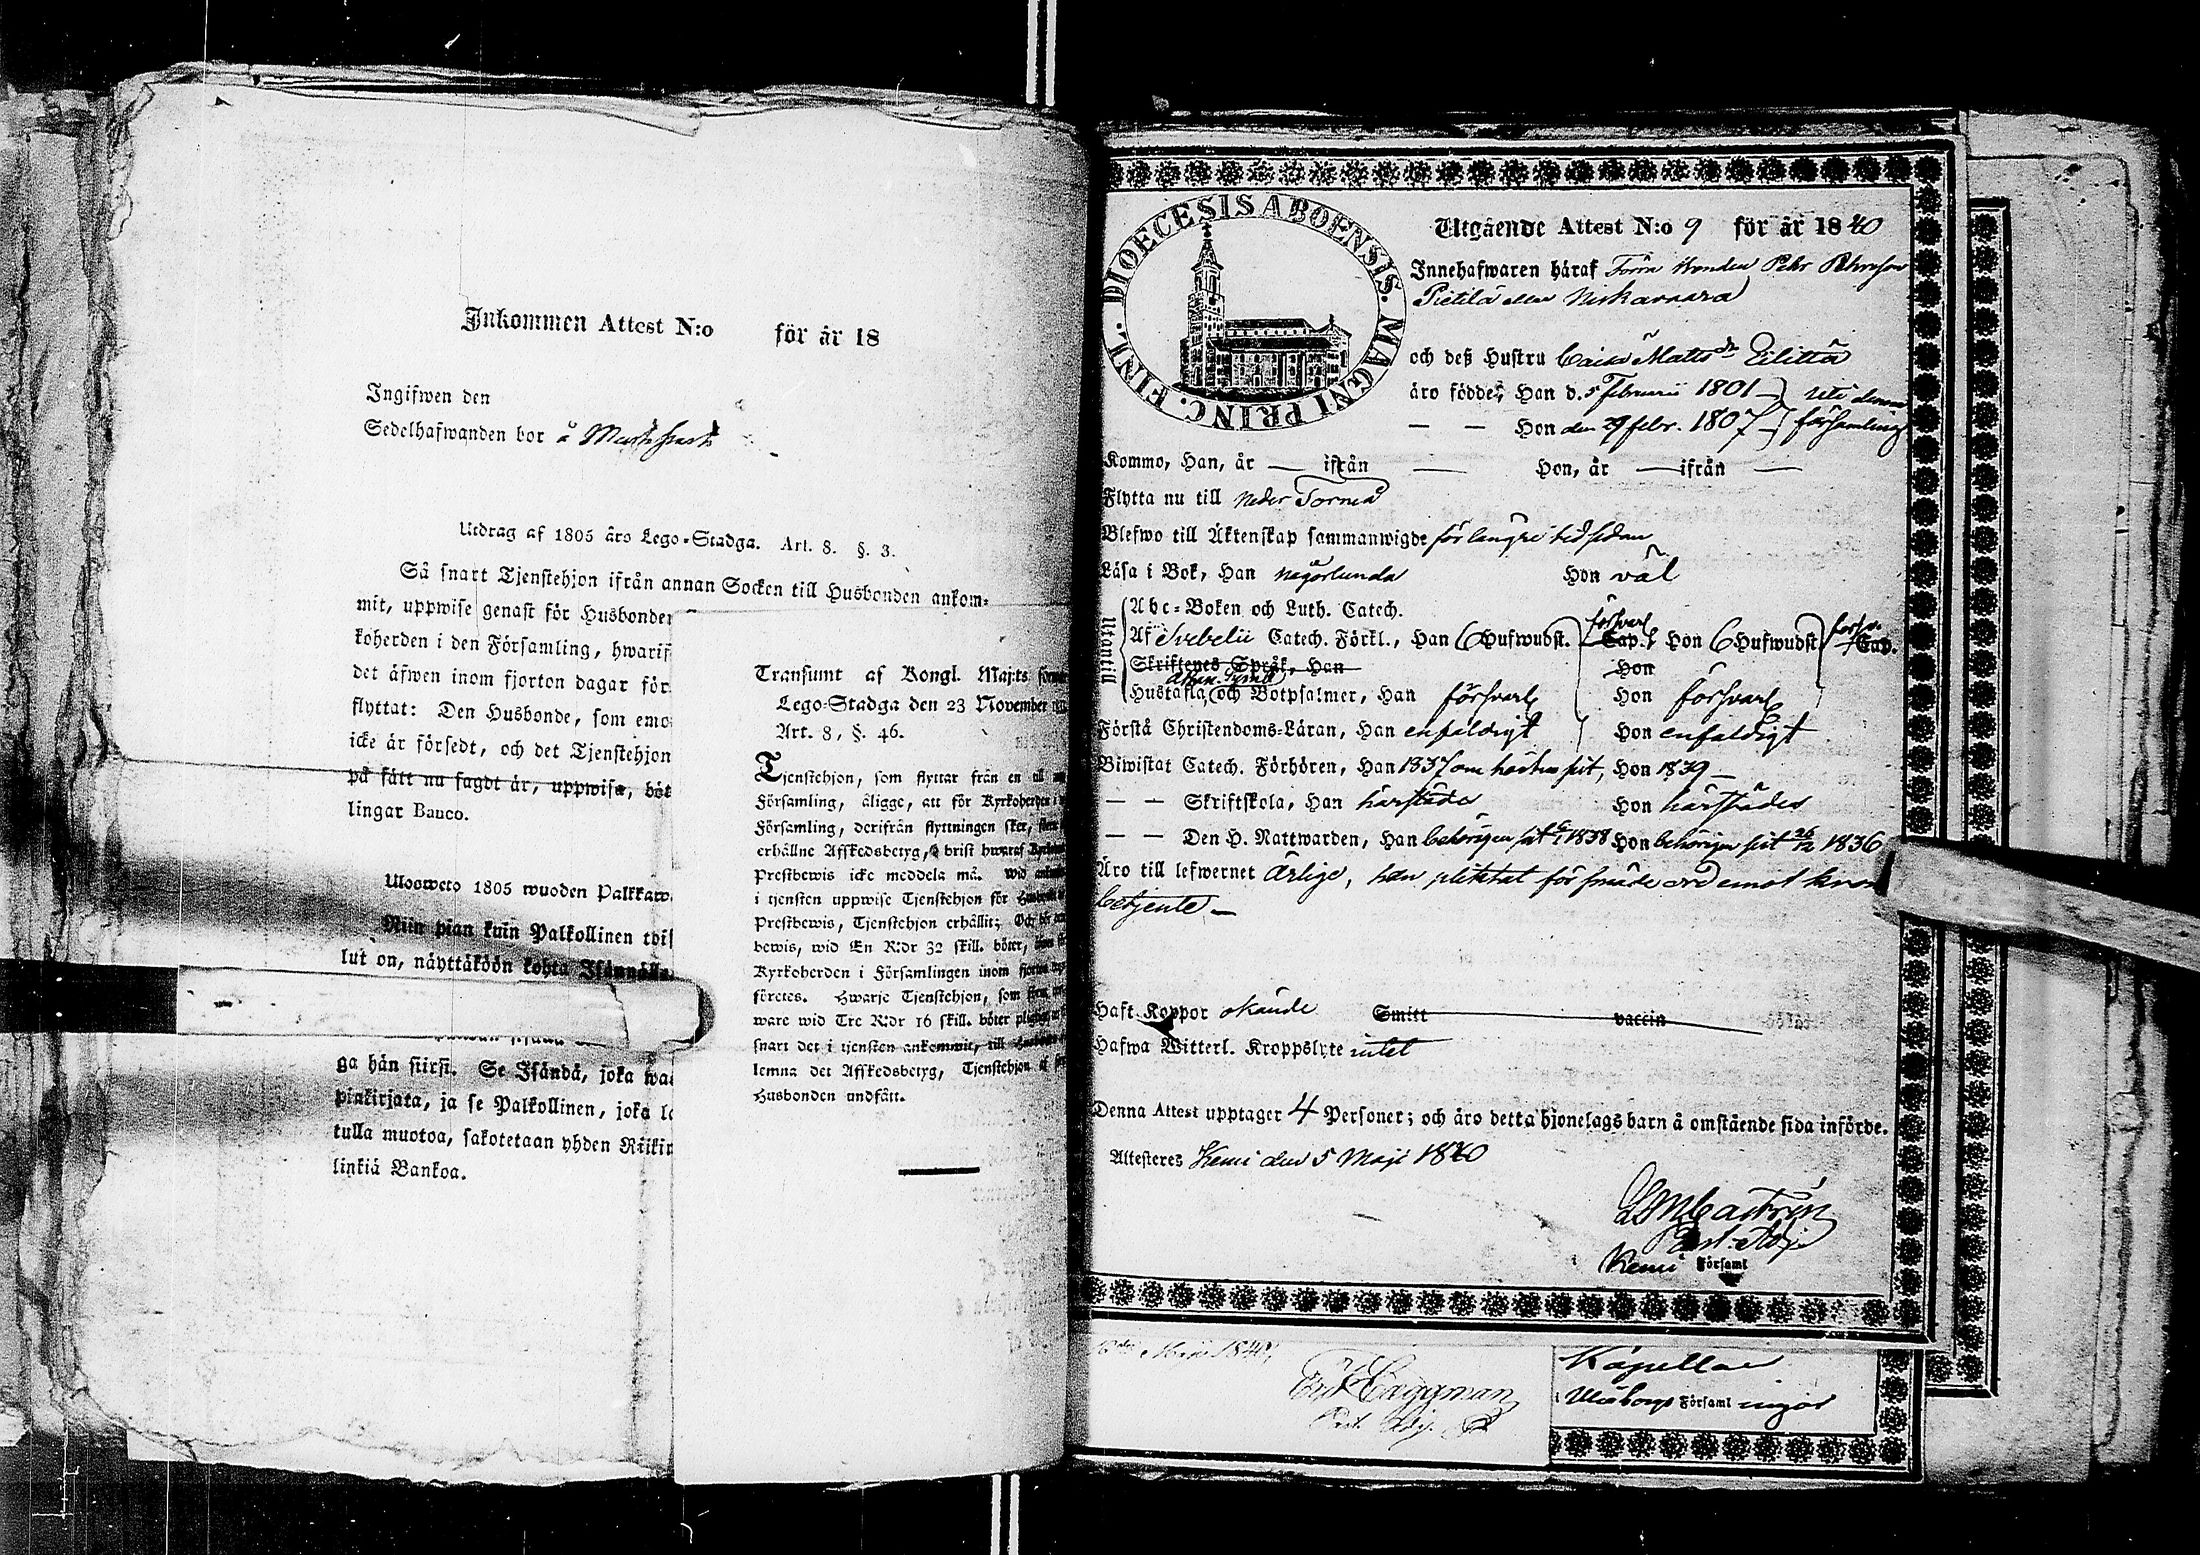 Inkommen Attest N:o för år 18
Ingifwen den
Sedelhafwanden bor å
Utdrag af 1805 års Lego-Stadga. Art. 8. §. 3.
Så snart Tjenstehjon ifrån annan Socken till Husbonden ankom-
mit, uppwise genast för Husbonden
koherden i den Församling, hwarif
det äfwen inom fjorton dagar för
flyttat: Den Husbonde, som emo
icke är försedt, och det Tjenstehjon
på sätt nu sagdt är, uppwiser, böt
lingar Banco.
Ulosweto 1805 wuoden Palkkaw
Niin pian kuin Palkollinen tois
lut on, näyttäköön kohta Isännälle
ga hän siirsi. Se Isändä, joka wa
pinkirjata, ja se Palkollinen, joka
tulla muotoa, sakotetaan yhden Riikin
linkiä Bankoa.
Transumt af Kongl. Maj:ts
Lego-Stadga den 23 November
Art. 8, §. 46.
Tjenstehjon, som flyttar från en till
Församling, åligge, att för Kyrkoherden i
Församling, derifrån flyttningen sker,
erhållne Afskedsbetyg, i brist hwaraf
Prestbewis icke meddela må. Wid
i tjensten uppwise Tjenstehjon för
Prestbewis, Tjenstehjon erhållit; Och
bewis, wid En R:dr 32 skill. böter,
Kyrkoherden i Församlingen inom
företes. Hwarje Tjenstehjon, som
ware wid Tre R:dr 16 skill. böter
snart det i tjensten ankommit, till
lemna det Afskedsbetyg, Tjenstehjon af
Husbonden undfått.
DIOECESIS ABOENSIS. MAGNI PRINC. FINL.
Utgående Attest N:o 9 för år 1840
Innehafwaren häraf Torin bonden Pehr
Pietilä eller Niskavaara
och deß Hustru Caisa Mattsdr Eilittä
äro födde, Han d. 5 Februarii 1801 uti denna
— — Hon den 29 febr. 1807 församling
Kommo, Han, år — ifrån — Hon, år — ifrån —
Flytta nu till Neder Torneå
Blefwo till Äktenskap sammanwigde för längre tid sedan
Läsa i Bok, Han någorlunda Hon väl
Utantil
Abc-Boken och Luth. Catech.
Af Svebelii Catech. Förkl., Han 6 Hufwudst. försvarl Cap. Hon 6 Hufwudst. försv. Cap.
Skriftenes Språk, Han Hon
Athan. Symb.
Hustafla, och Botpsalmer, Han försvarl Hon försvarl
Förstå Christendoms-Läran, Han enfaldigt Hon enfaldigt
Biwistat Catech. Förhören, Han 1837 om hösten sist, Hon 1839 —
— — Skriftskola, Han härstädes Hon härstädes
— — Den H. Nattwarden, Han behörigen sist 1838 Hon behörigen sist 26/12 1836
Äro till lefwernet ärlige, han pliktat för smäde ord emot krono
betjente —
Haft Koppor ökände Smitt vaccin
Hafwa Witterl. Kroppslyte intet
Denna Attest upptager 4 Personer; och äro detta hjonelags barn å omstående sida införde.
Attesteres Kemi den 5 Maji 1840
Castrén
Past. Adj.
Kemi Församl
Maji 1840,
Er. Heggman
Past. Adj.
Kapellan
i Uleåborgs Församl ingår